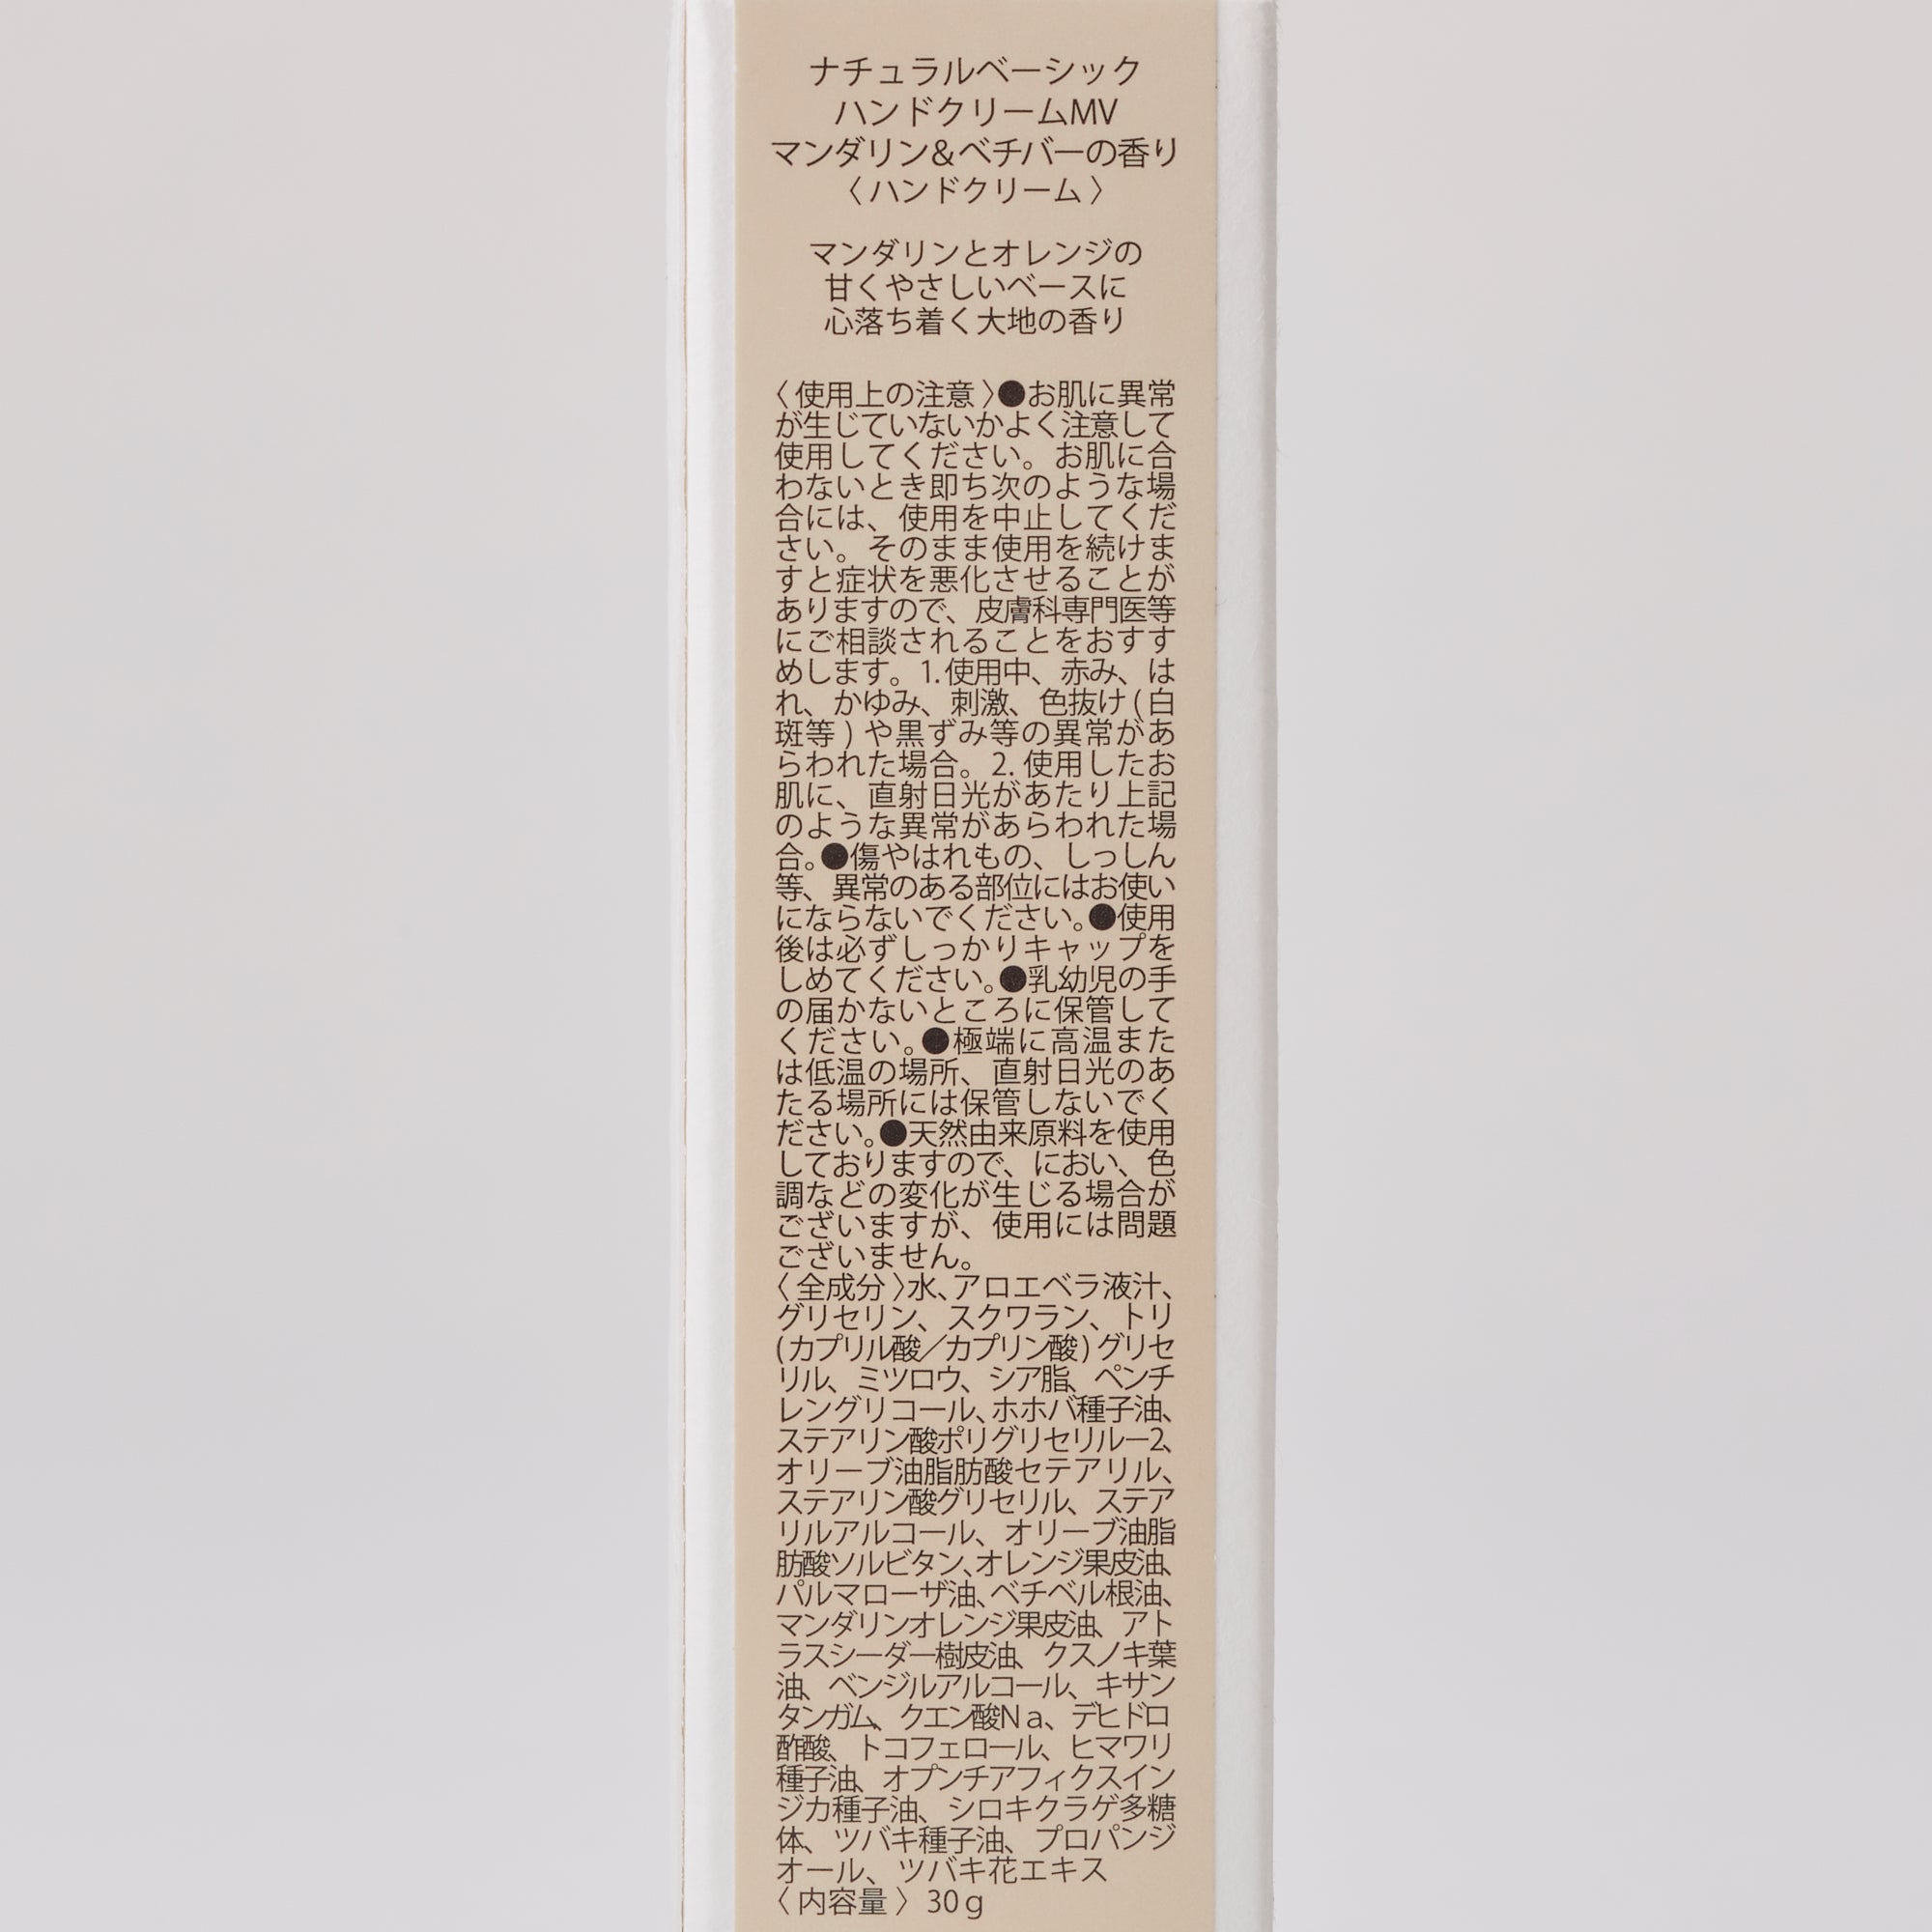 ナチュラルベーシック
ハンドクリームMV
マンダリン&ベチバーの香り
〈ハンドクリーム〉
マンダリンとオレンジの
甘くやさしいベースに
心落ち着く大地の香り
〈使用上の注意〉●お肌に異常
が生じていないかよく注意して
使用してください。お肌に合
わないとき即ち次のような場
合には、使用を中止してくだ
さい。そのまま使用を続けま
すと症状を悪化させることが
ありますので、皮膚科専門医等
にご相談されることをおすす
めします。1.使用中、赤み、は
れ、かゆみ、刺激、色抜け(白
斑等)や黒ずみ等の異常があ
らわれた場合。2.使用したお
肌に、直射日光があたり上記
のような異常があらわれた場
合。●傷やはれもの、しっしん
等、異常のある部位にはお使い
にならないでください。●使用
後は必ずしっかりキャップを
しめてください。●乳幼児の手
の届かないところに保管して
ください。●極端に高温また
は低温の場所、直射日光のあ
たる場所には保管しないでく
ださい。●天然由来原料を使用
しておりますので、におい、色
調などの変化が生じる場合が
ございますが、使用には問題
ございません。
〈全成分〉水、アロエベラ液汁、
グリセリン、スクワラン、トリ
(カプリル酸／カプリン酸)グリセ
リル、ミツロウ、シア脂、ペンチ
レングリコール、ホホバ種子油、
ステアリン酸ポリグリセリルー2、
オリーブ油脂肪酸セテアリル、
ステアリン酸グリセリル、ステア
リルアルコール、オリーブ油脂
肪酸ソルビタン、オレンジ果皮油、
パルマローザ油、ベチベル根油、
マンダリンオレンジ果皮油、アト
ラスシーダー樹皮油、クスノキ葉
油、ベンジルアルコール、キサン
タンガム、クエン酸Na、デヒドロ
酢酸、トコフェロール、ヒマワリ
種子油、オプンチアフィクスイン
ジカ種子油、シロキクラゲ多糖
体、ツバキ種子油、プロパンジ
オール、ツバキ花エキス
〈内容量〉30g